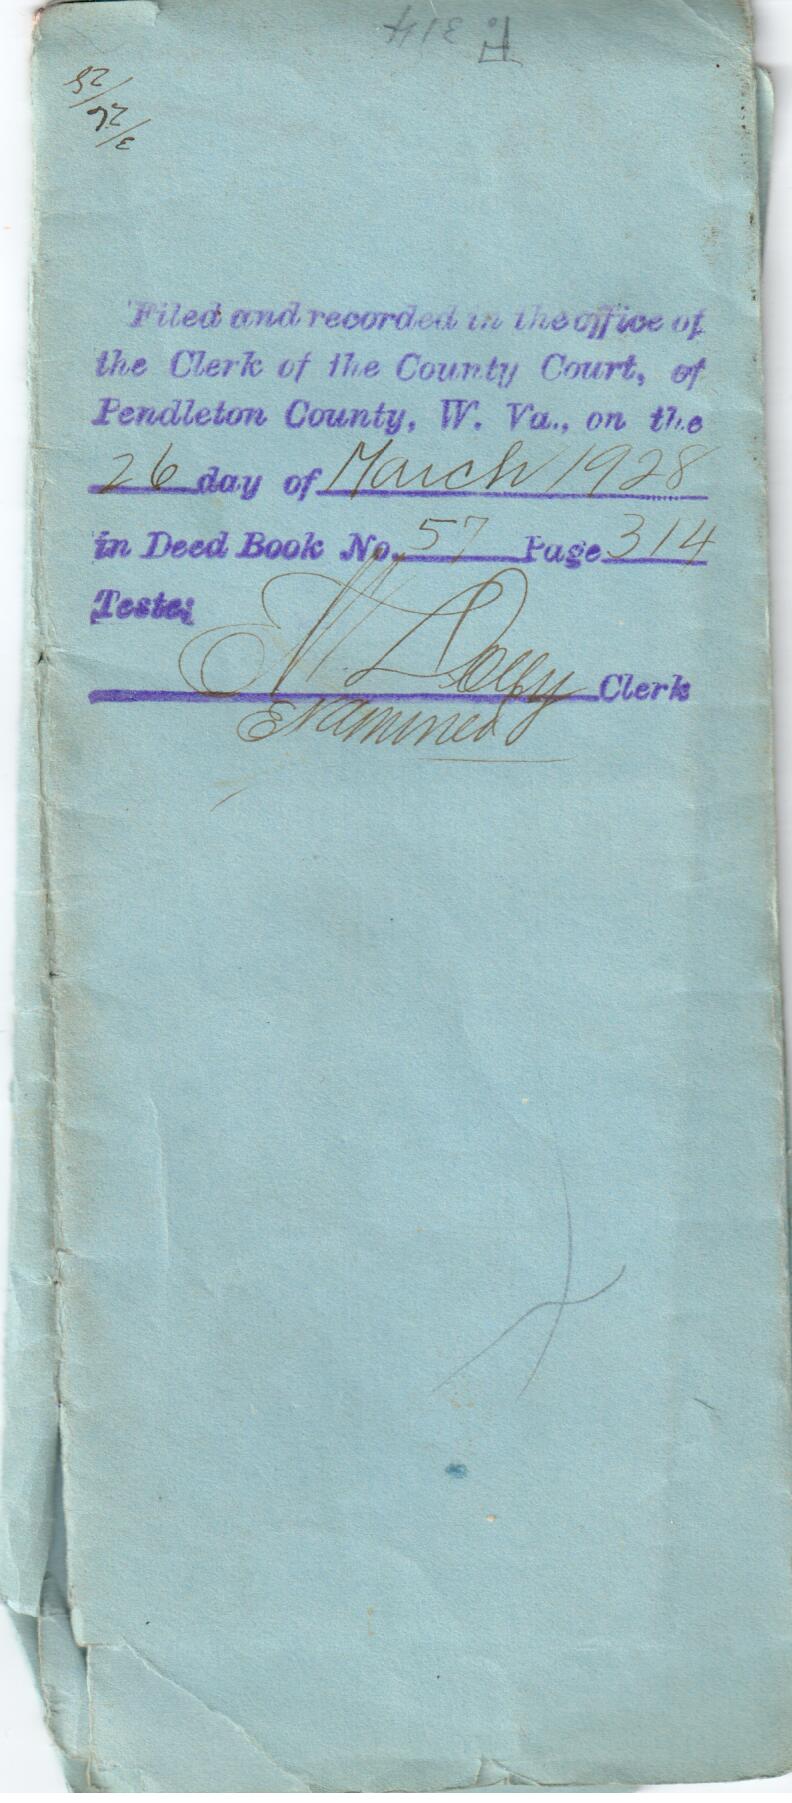 P. 314
3/26/28
Filed and recorded in the office of
the Clerk of the County Court, of
Pendleton County, W. Va., on the
26 day of March 1928
in Deed Book No. 57 Page 314
Teste:
Clerk
Examined